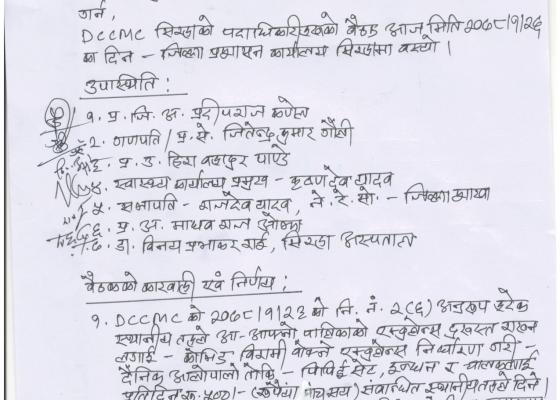 गर्न,
DCCMC सिराहाको पदाधिकारीहरूको बैठक आज मिति २०७८।९।२६
का दिन - जिल्ला प्रशासन कार्यालय सिराहामा बस्यो।
उपस्थिति :
१. प्र. जि. अ. प्रदीपराज कणेल
२. गणपति / प्र. से. जितेन्द्र कुमार
३. प्र. उ. हिरा बहादुर पाण्डे
४. स्वास्थ्य कार्यालय प्रमुख - कृष्णदेव यादव
५. सभापति - राजदेव यादव, ने. रे. सो. - जिल्ला शाखा
६. प्र. अ. माधव राज ओझा
७. डा. विनय प्रभाकर साई, सिराहा अस्पताल
बैठकको कारवाही एवं निर्णय :
१. DCCMC को २०७८।९।२६ को नि. नं. २(६) अनुरूप हरेक
स्थानीय तहले आ-आफ्नो पालिकाको एम्बुलेन्स दुरुस्त राख्न
लगाई - कोभिड बिरामी बोक्ने एम्बुलेन्स निर्धारण गरी -
दैनिक आलोपालो तोकि - पिपिई सेट, इन्धन र चालकलाई
प्रतिदिन रू. ५००।- (रूपैयाँ पाँच सय) सम्बन्धित स्थानीय तहले दिने।